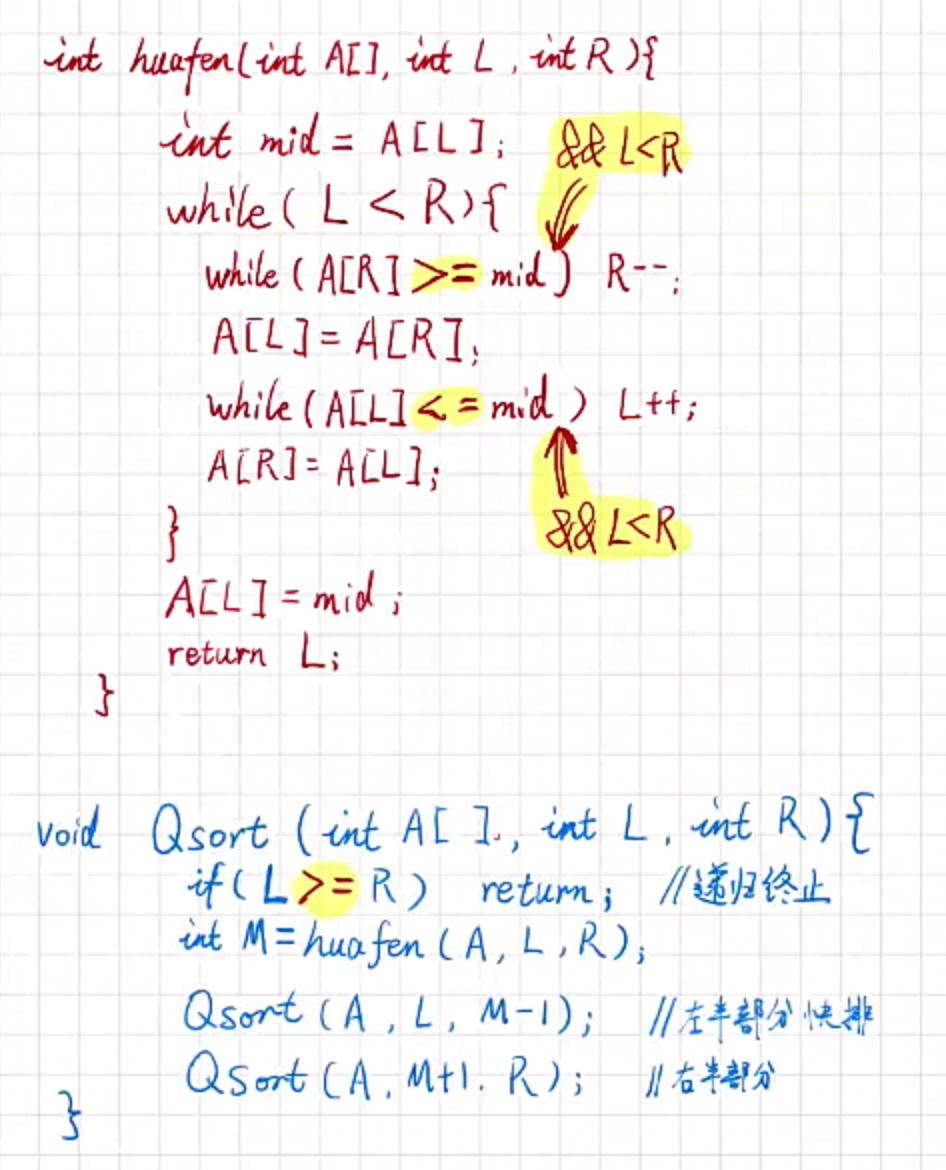 int huafen(int A[], int L, int R){
int mid = A[L];
&& L<R
while( L < R){
while ( A[R] >= mid ) R--;
A[L] = A[R];
while (A[L] <= mid ) L++;
A[R] = A[L];
&& L<R
}
A[L] = mid ;
return L;
}
void Qsort (int A[ ], int L, int R){
if( L >= R ) return; //递归终止
int M = huafen (A, L, R);
Qsort (A, L, M-1); //左半部分快排
QSort (A, M+1. R); //右半部分
}